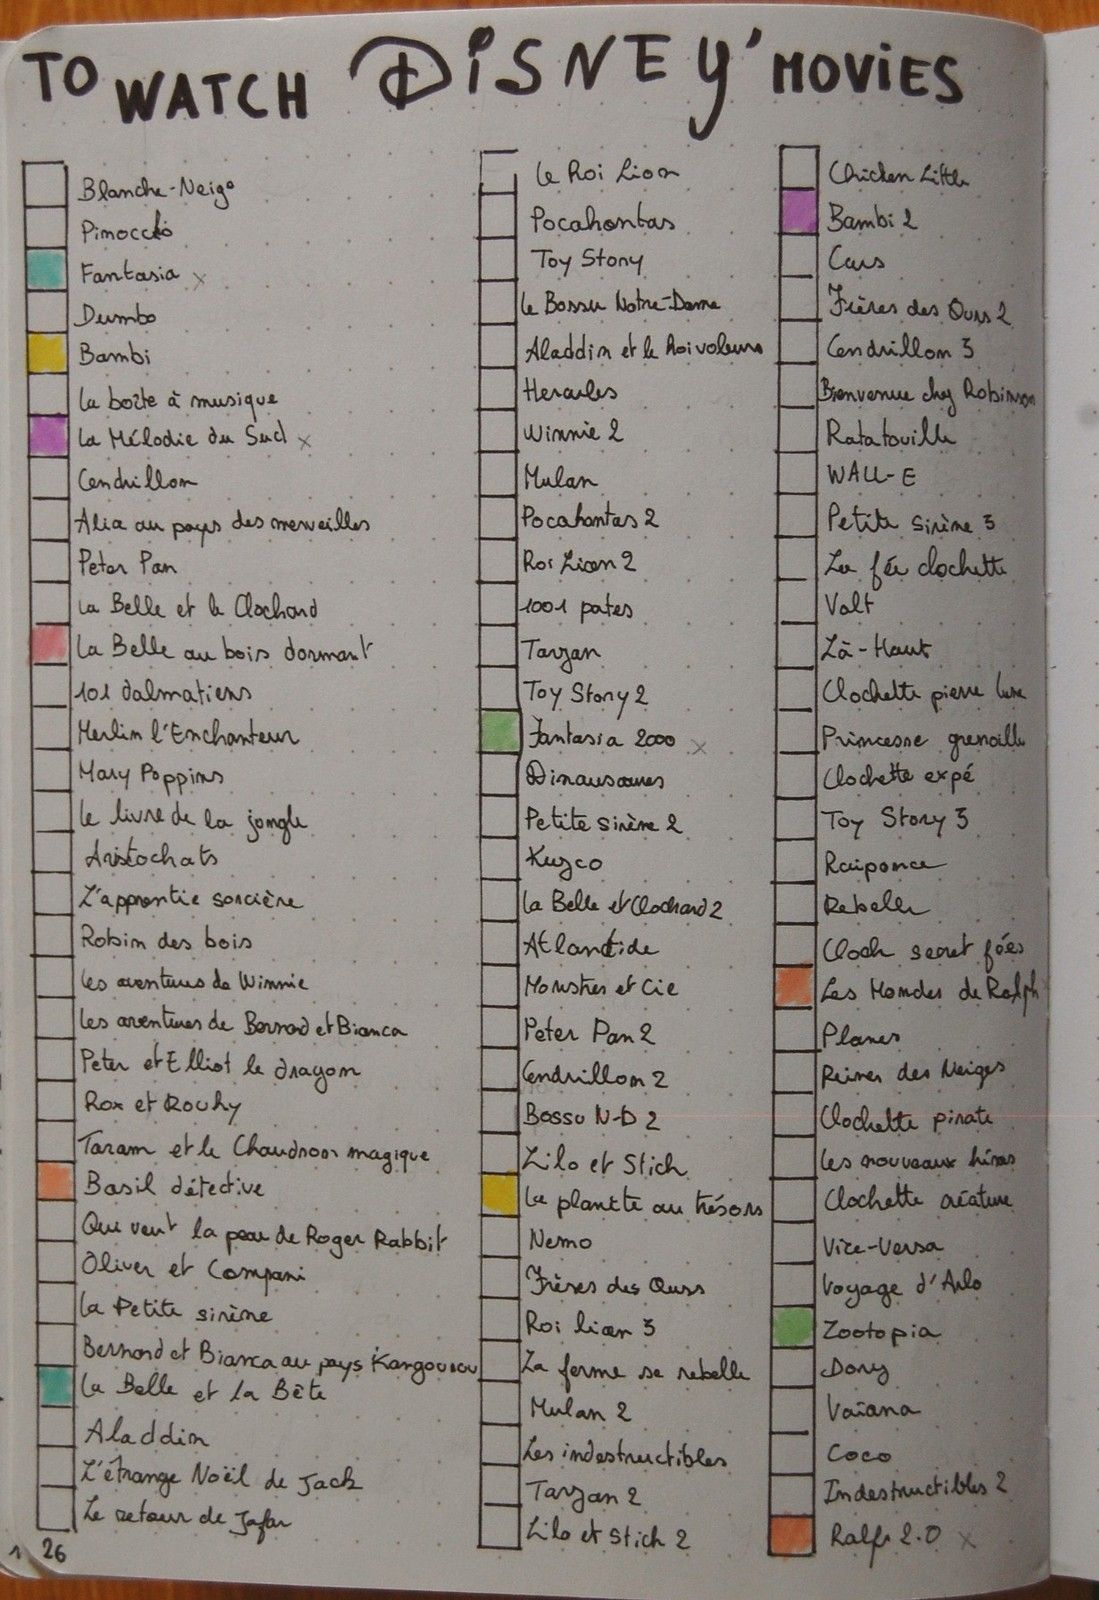 TO WATCH DISNEY' MOVIES
Blanche-Neige
Pinocchio
Fantasia x
Dumbo
Bambi
La boîte à musique
La Mélodie du Sud x
Cendrillon
Alice au pays des merveilles
Peter Pan
La Belle et le Clochard
La Belle au bois dormant
101 dalmatiens
Merlin l'Enchanteur
Mary Poppins
Le livre de la jongle
Aristochats
L'apprentie sorcière
Robin des bois
Les aventures de Winnie
Les aventures de Bernard et Bianca
Peter et Elliot le dragon
Rox et Rouky
Taram et le Chaudron magique
Basil détective
Qui veut la peau de Roger Rabbit
Oliver et Compani
La Petite sirène
Bernard et Bianca au pays Kangourou
La Belle et La Bête
Aladdin
L'étrange Noël de Jack
Le retour de Jafar
26
Le Roi Lion
Pocahontas
Toy Story
Le Bossu Notre-Dame
Aladdin et le Roi voleurs
Hercules
Winnie 2
Mulan
Pocahontas 2
Roi Lion 2
1001 pates
Tarzan
Toy Story 2
Fantasia 2000 x
Dinausaures
Petite sirène 2
Kuzco
La Belle et Clochard 2
Atlantide
Monstres et Cie
Peter Pan 2
Cendrillon 2
Bossu N-D 2
Lilo et Stich
La planète au trésors
Nemo
Frères des Ours
Roi lion 3
La ferme se rebelle
Mulan 2
Les indestructibles
Tarzan 2
Lilo et Stich 2
Chicken Little
Bambi 2
Cars
Frères des Ours 2
Cendrillon 3
Bienvenue chez Robinson
Ratatouille
WALL-E
Petite sirène 3
La fée clochette
Volt
Là-Haut
Clochette pierre lune
Princesse grenouille
Clochette expé
Toy Story 3
Raiponce
Rebelle
Cloch secret fées
Les Mondes de Ralph
Planes
Reines des Neiges
Clochette pirate
Les nouveaux héros
Clochette créature
Vice-Versa
Voyage d'Arlo
Zootopia
Dory
Vaïana
Coco
Indestructibles 2
Ralph 2.0 x